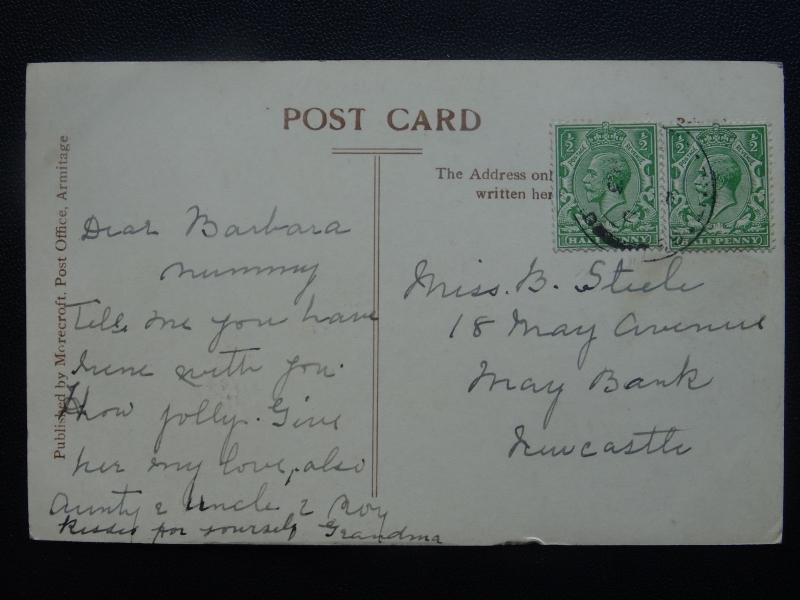 POST CARD
The Address onl
written her
Published by Morecroft, Post Office, Armitage
½ ½
HALFPENNY
HALFPENNY
Dear Barbara
Mummy
Tells me you have
Irene with you.
How jolly. Give
her my love, also
Aunty & Uncle & Roy
Kisses for yourself Grandma
Miss. B. Steele
18 May Avenue
May Bank
Newcastle